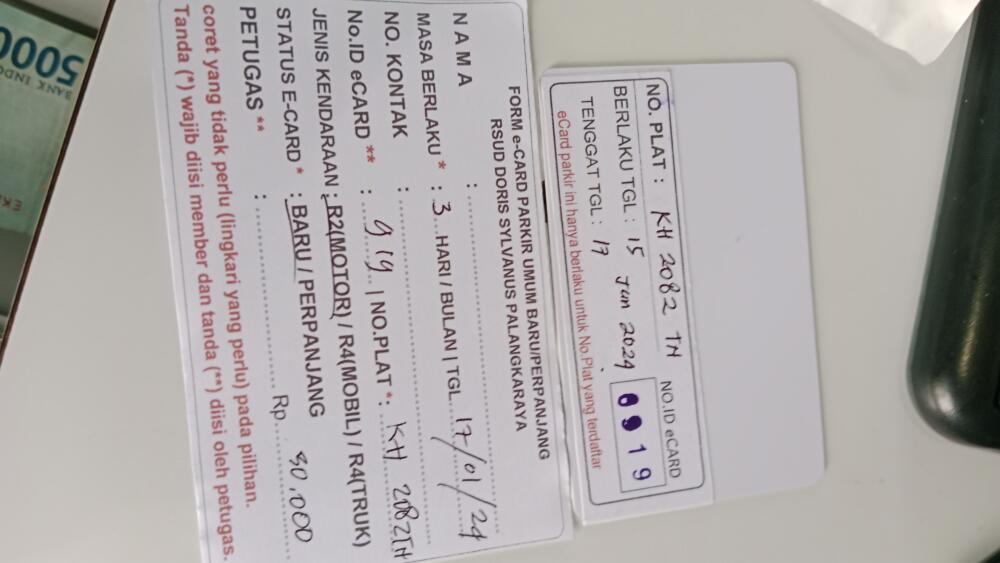 FORM e-CARD PARKIR UMUM BARU/PERPANJANG
RSUD DORIS SYLVANUS PALANGKARAYA
N A M A :
MASA BERLAKU * : 3 HARI / BULAN | TGL. 17/01/24
NO. KONTAK :
No.ID eCARD ** : 919 | NO.PLAT *: KH 2082TH
JENIS KENDARAAN : R2(MOTOR) / R4(MOBIL) / R4(TRUK)
STATUS E-CARD * : BARU / PERPANJANG
PETUGAS ** : Rp. 30.000
coret yang tidak perlu (lingkari yang perlu) pada pilihan.
Tanda (*) wajib diisi member dan tanda (**) diisi oleh petugas.
NO. PLAT : KH 2082 TH
NO.ID eCARD
BERLAKU TGL : 15 Jan 2024
0919
TENGGAT TGL : 17
eCard parkir ini hanya berlaku untuk No.Plat yang terdaftar
5000
BANK INDO